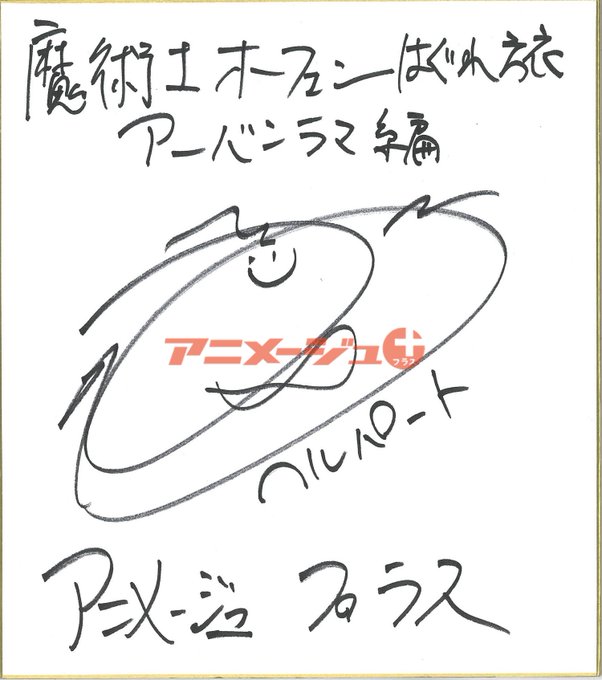 魔術士オーフェンはぐれ旅
アーバンラマ編
アニメージュプラス
ヘルパート
アニメージュ プラス